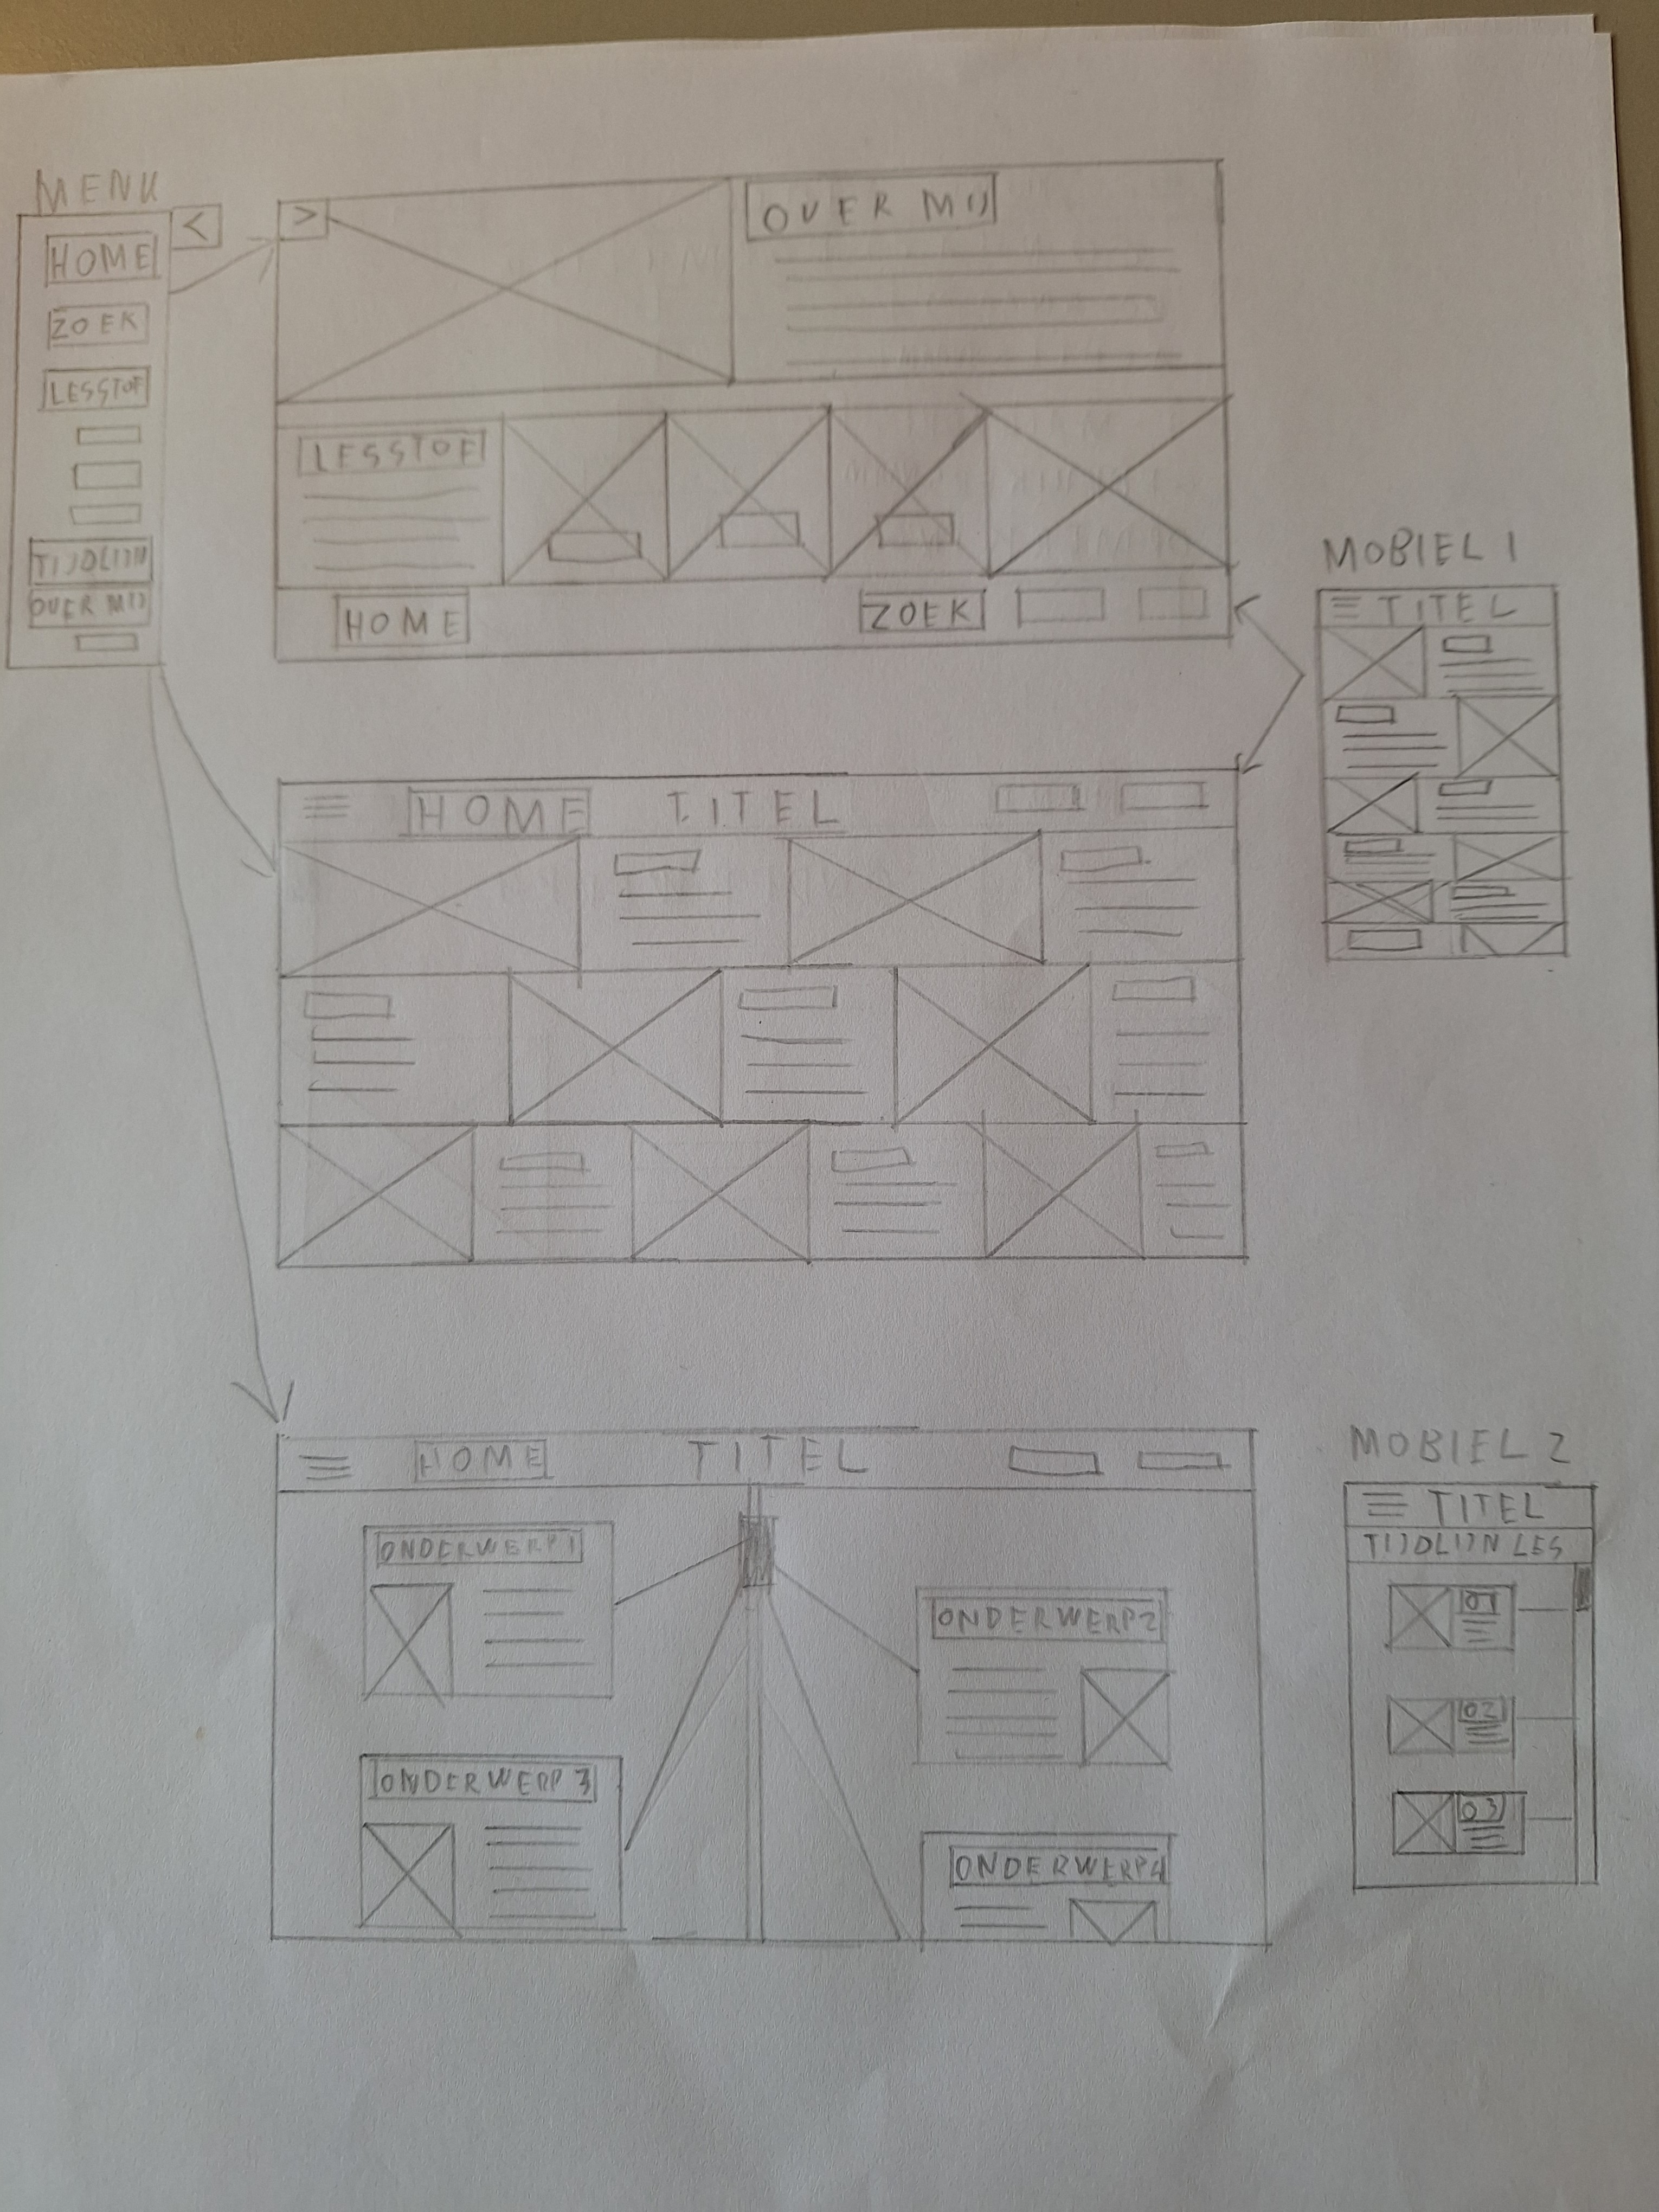 MENU
<
HOME
ZOEK
LESSTOF
TIJDLIJN
OVER MIJ
>
OVER MIJ
LESSTOF
HOME
ZOEK
MOBIEL 1
TITEL
HOME
TITEL
HOME
TITEL
ONDERWERP 1
ONDERWERP 2
ONDERWERP 3
ONDERWERP 4
MOBIEL 2
TITEL
TIJDLIJN LES
O1
O2
O3